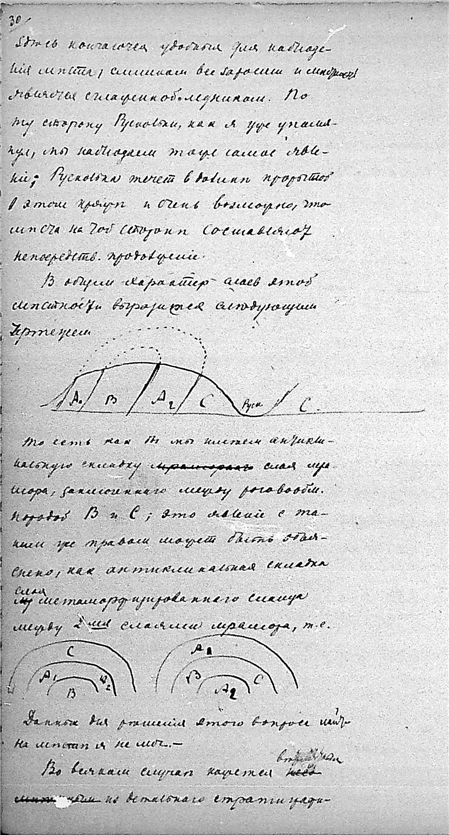 30
Здесь кончаются удобныя для наблюде-
нія мѣста, слишкомъ все заросши и
является сглаженной ледникомъ. По
ту сторону Русковки, какъ я уже упомя-
нулъ, мы наблюдаемъ тоже самое явле-
ніе; Русковка течетъ в долинѣ прорытой
в этомъ и очень возможно, что
мѣста на обѣ стороны составляютъ
непосредств. продолженіе.
В общемъ характеръ слоевъ этой
мѣстности выразится следующимъ
чертежемъ
A1 B A2 C C.
то есть какъ бы мы имѣемъ антикли-
нальную складку мраморнаго слоя мра-
мора, заключеннаго между роговообм.
породой B и C; это явленіе с та-
кимъ же правомъ можетъ быть объяс-
нено, какъ антиклинальная складка
слоя
метаморфизированнаго сланца
между 2 мя слоями мрамора, т.е.
C A2
A1 A2 B C
B A2
Данныхъ для рѣшенія этого вопроса найти
на мѣстѣ я не могъ. —
Во всякомъ случаѣ кажется
изъ детальнаго стратиграфи-